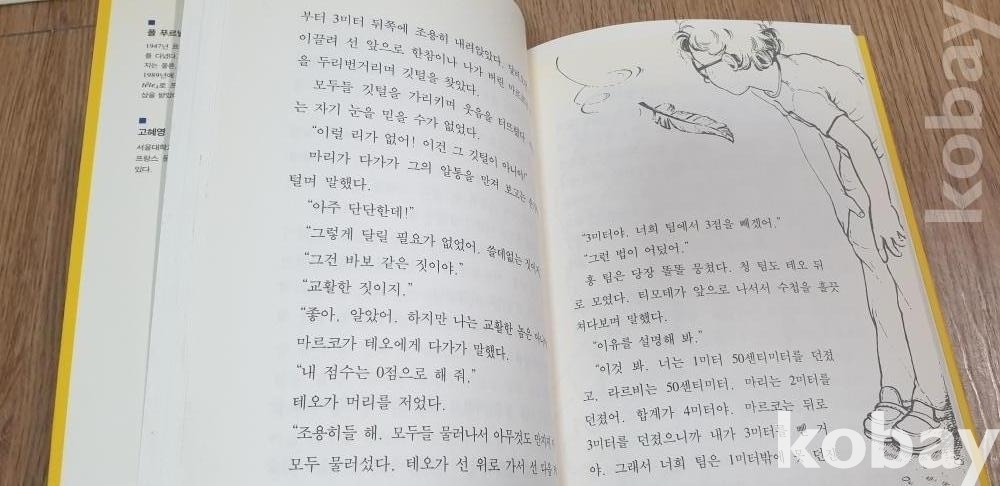 폴 푸르
1947년 프
를 다녔다
지는 물론,
1989년에
상을 받았
고혜영
서울대학
프랑스 문
있다.
부터 3미터 뒤쪽에 조용히 내려앉았다.
이끌려 선 앞으로 한참이나 나가 버린 마르코
을 두리번거리며 깃털을 찾았다.
모두들 깃털을 가리키며 웃음을 터뜨렸다
는 자기 눈을 믿을 수가 없었다.
"이럴 리가 없어! 이건 그 깃털이 아니야!"
마리가 다가가 그의 알통을 만져 보고는
털며 말했다.
"아주 단단한데!"
"그렇게 달릴 필요가 없었어. 쓸데없는 짓이지
"그건 바보 같은 짓이야."
"교활한 짓이지."
"좋아, 알았어. 하지만 나는 교활한 놈은
마르코가 테오에게 다가가 말했다.
"내 점수는 0점으로 해 줘."
테오가 머리를 저었다.
"조용히들 해. 모두들 물러나서 아무것도 만지지
모두 물러섰다. 테오가 선 위로 가서 선 다음
"3미터야. 너희 팀에서 3점을 빼겠어."
"그런 법이 어딨어."
홍 팀은 당장 똘똘 뭉쳤다. 청 팀도 테오 뒤
로 모였다. 티모테가 앞으로 나서서 수첩을 흘끗
쳐다보며 말했다.
"이유를 설명해 봐."
"이것 봐. 너는 1미터 50센티미터를 던졌
고, 라르비는 50센티미터, 마리는 2미터를
던졌어. 합계가 4미터야. 마르코는 뒤로
3미터를 던졌으니까 내가 3미터를 뺀 거
야. 그래서 너희 팀은 1미터밖에 못 던진
kobay
kobay